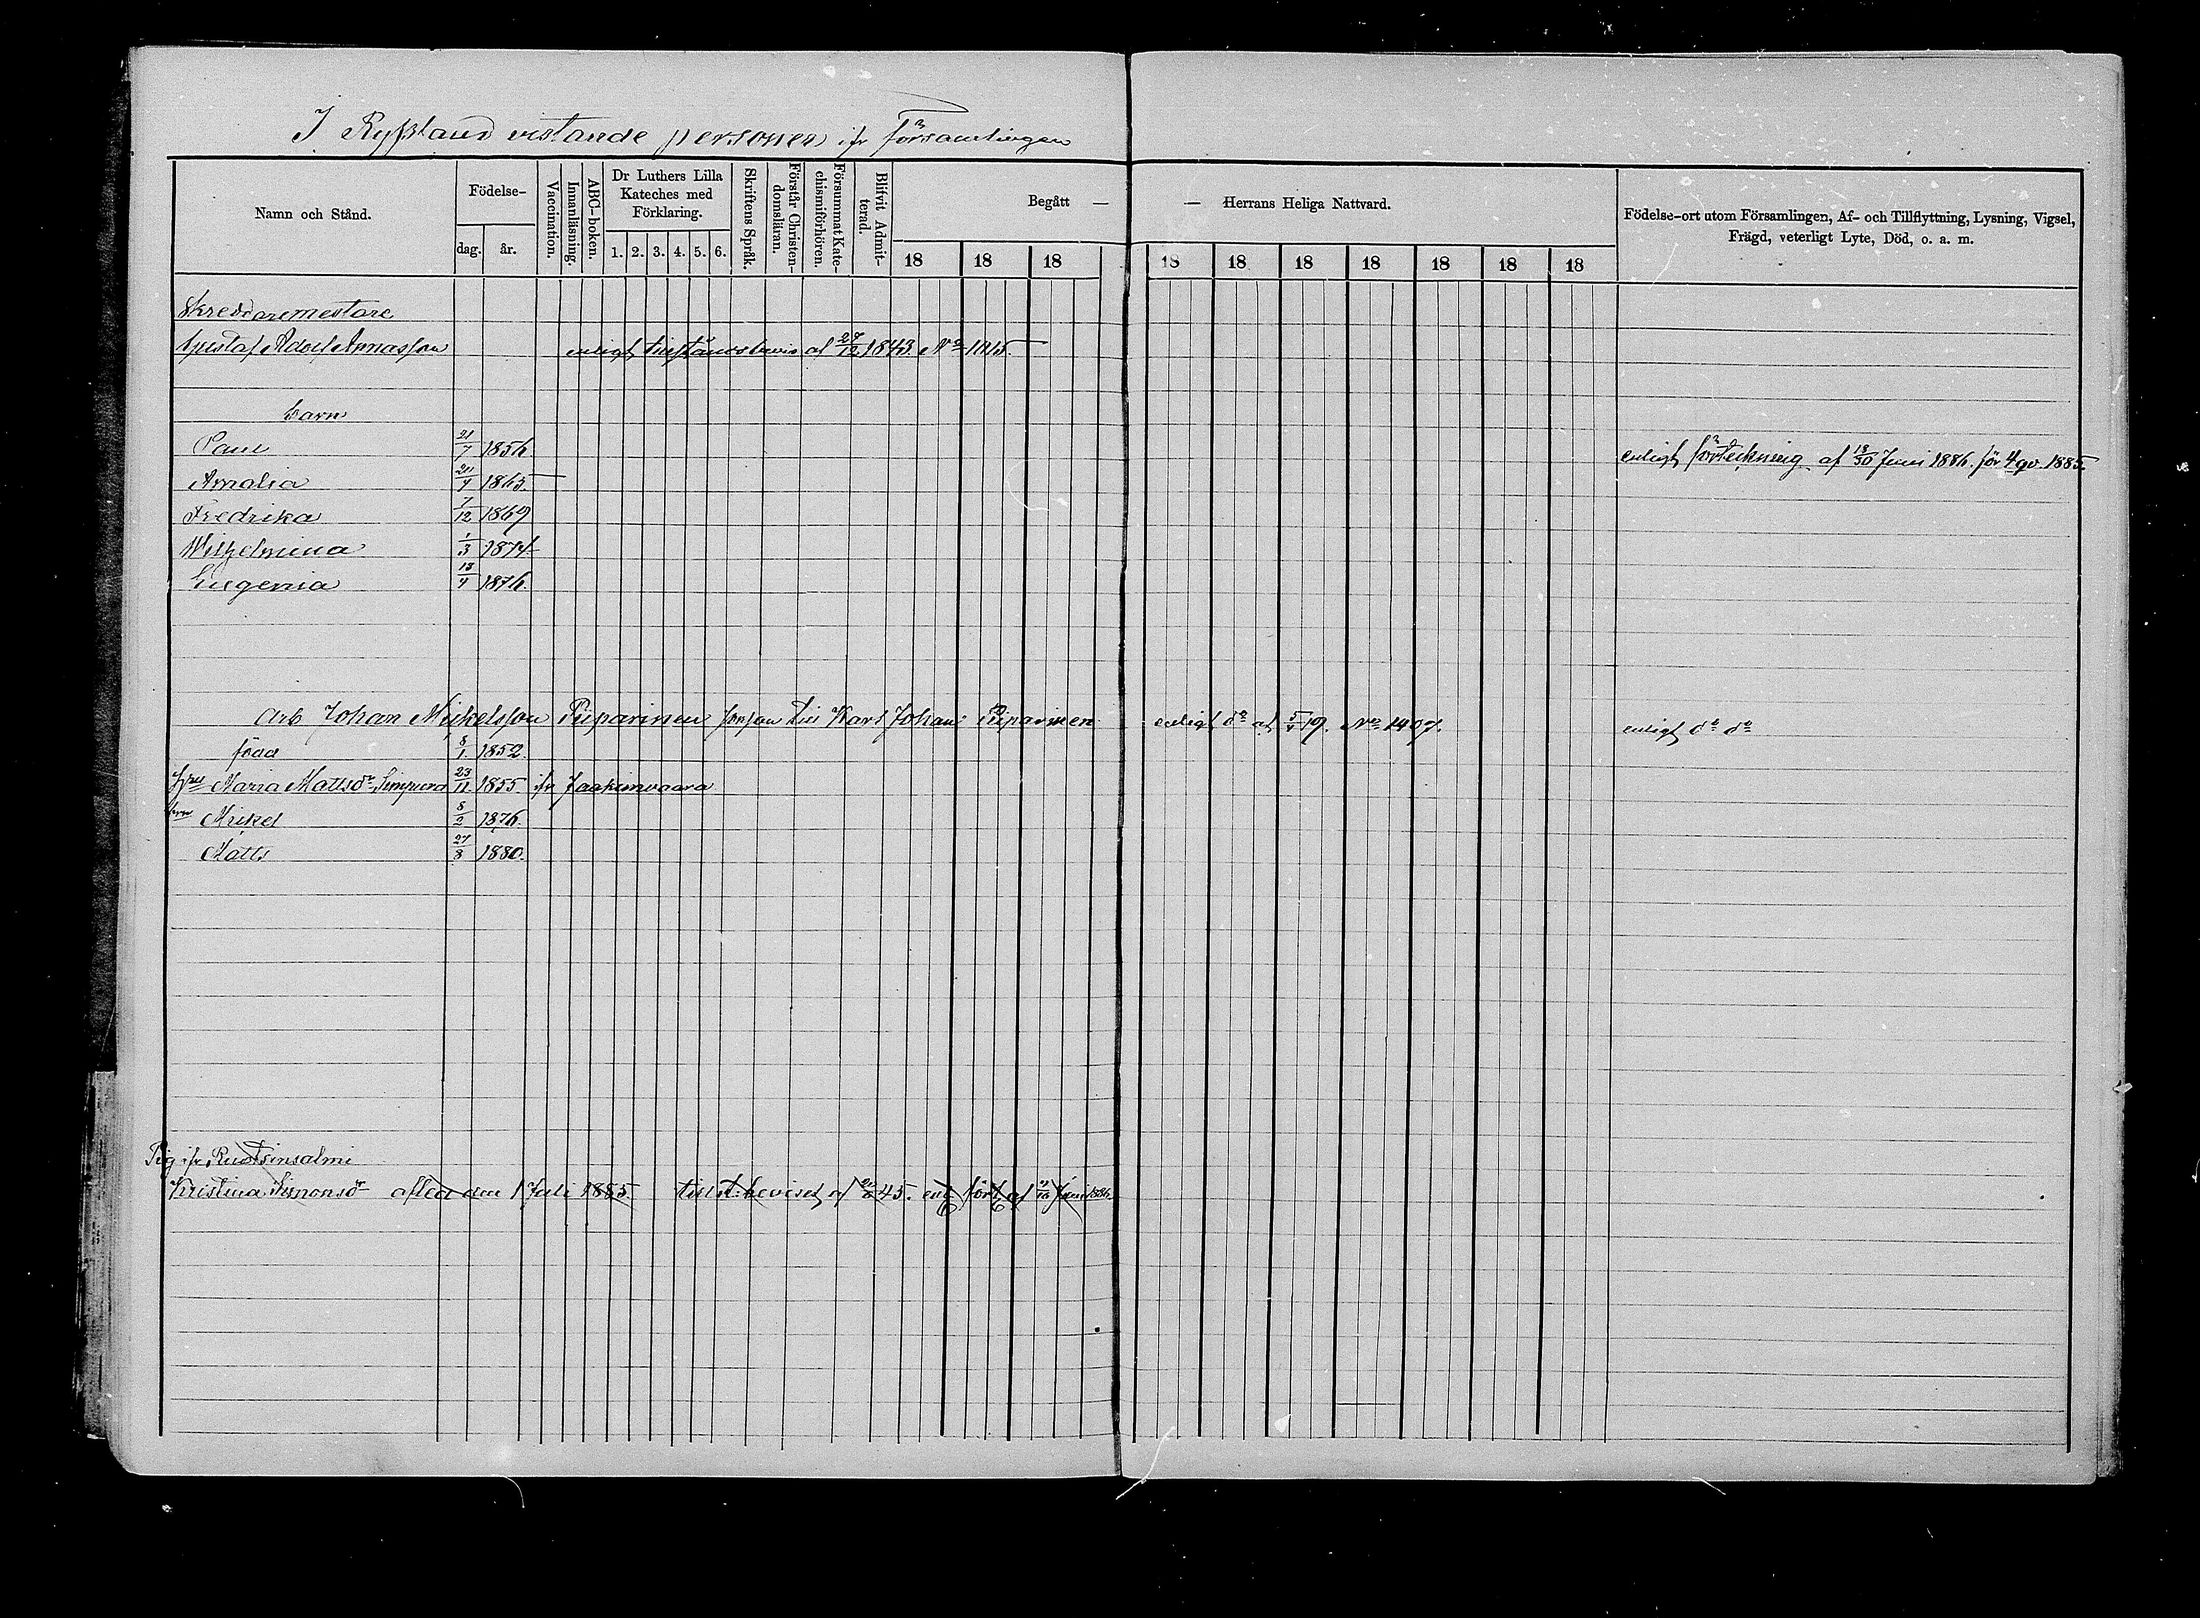 I Ryssland vistande personer ifr församlingen
Namn och Stånd.
Födelse-
dag.
år.
Vaccination.
Innanläsning.
ABC-boken.
Dr Luthers Lilla
Kateches med
Förklaring.
1. 2. 3. 4. 5. 6.
Skriftens Språk.
Förstår Christen-
domsläran.
Försummat Kate-
chismiförhören.
Blifvit Admit-
terad.
Begått — — Herrans Heliga Nattvard.
18 18 18 18 18 18 18 18 18 18
Födelse-ort utom Församlingen, Af- och Tillflyttning, Lysning, Vigsel,
Frägd, veterligt Lyte, Död, o. a. m.
Skreddaremestare
Gustaf Adolf Annasson enligt tillståndsbevis af 27/12 1843. No 1815.
barn
Paul 21/7 1856. enligt förteckning af 18/30 Juni 1886. för 4 qv. 1885.
Amalia 1865
Fredrika 7/12 1869
Wilhelmina 1/3 1874
Eugenia 13/4 1876.
Arb Johan Mikelsson Piiparinen son till Karl Johan Piiparinen enligt do af No 1407. enligt do do
född 8/1. 1852.
Maria Mattsdr 23/11. 1855 ifr Jaakimvaara
Mikel 8/2 1876.
Matts 27/8 1880.
Pig ifr Ruotsinsalmi
Kristina Simonsdr afled den 1 Juli 1885. tillst. beviset af 45. enl. fört. af Juni 1886.